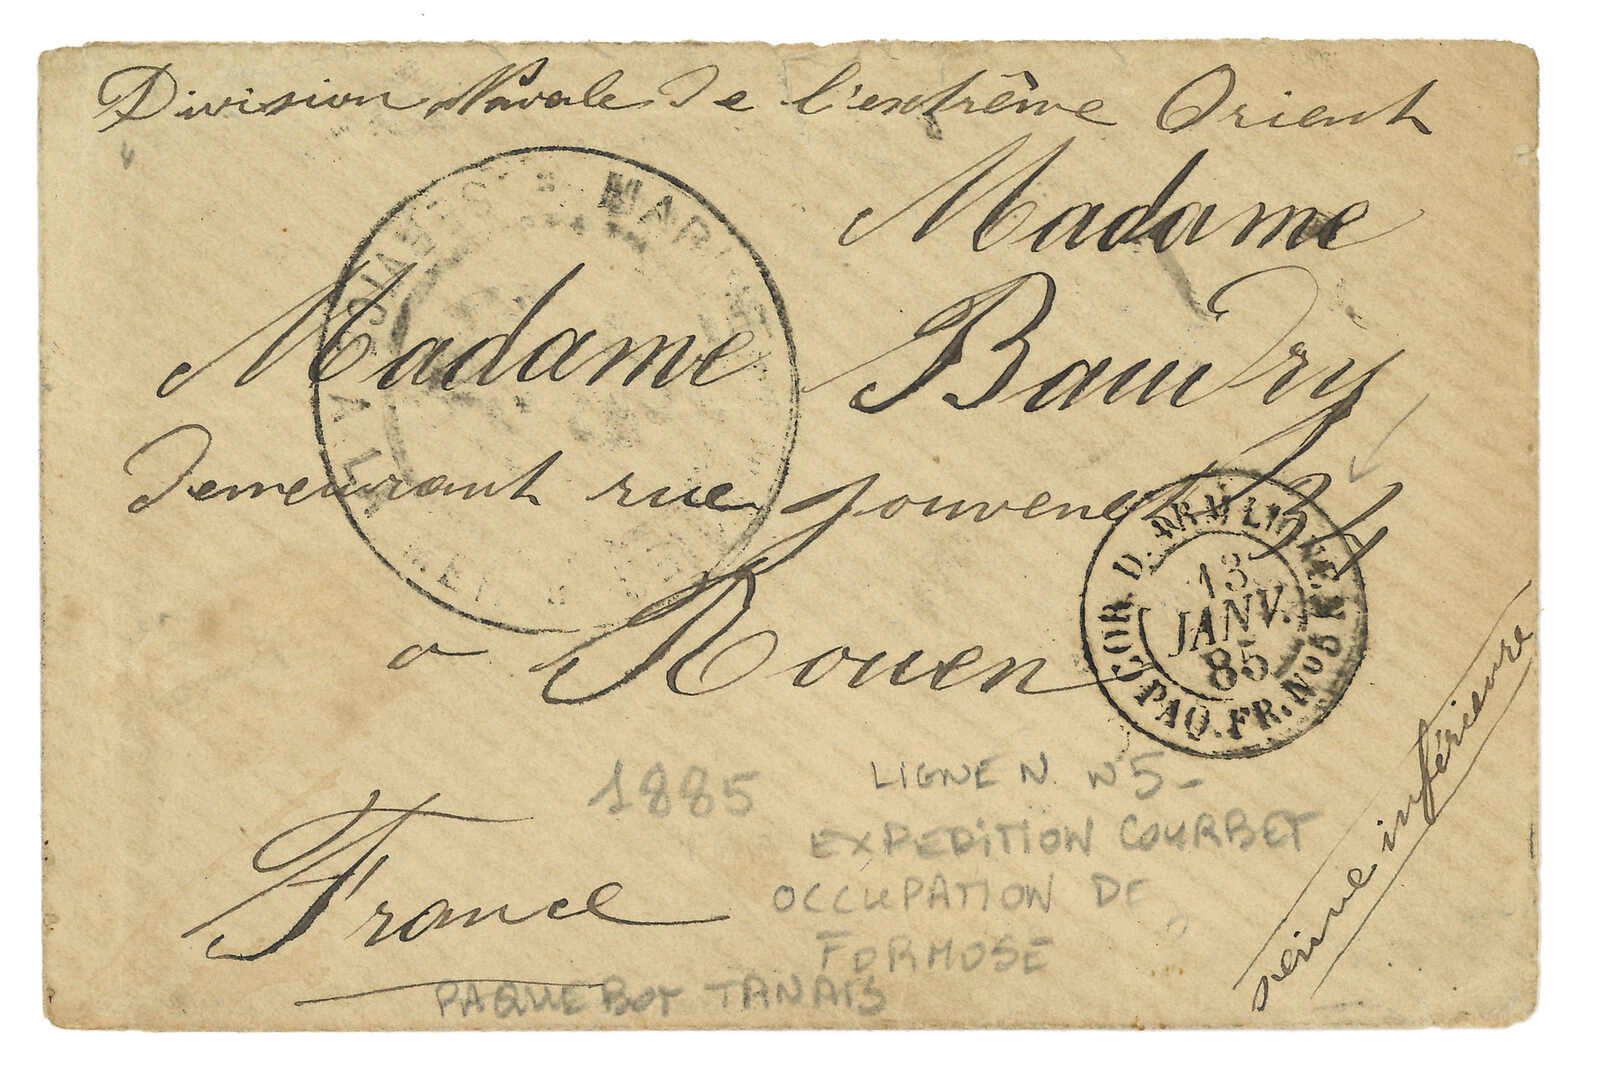 Division Navale de l'extrême Orient
Madame
Madame Baudry
demeurant rue Jouvenet 34
a Rouen
COR. D. ARM. LIGNE N
PAQ. FR. No 5
13
JANV.
85
seine inférieure
France
1885
LIGNE N. N°5-
EXPEDITION COURBET
OCCUPATION DE
FORMOSE
PAQUEBOT TANAIS